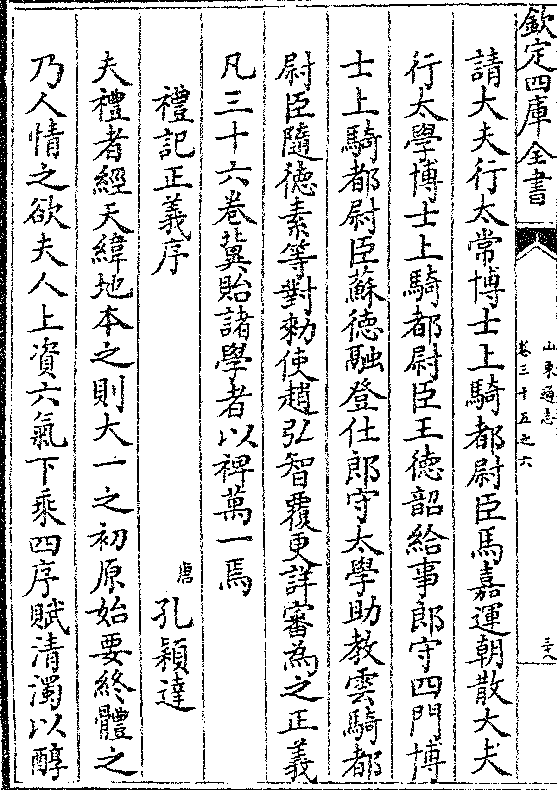 欽定四庫全書
山東通志
卷三十五之六
請大夫行太常博士上騎都尉臣馬嘉運朝散大夫
行太學博士上騎都尉臣王德韶給事郎守四門博
士上騎都尉臣蘇德融登仕郎守太學助教雲騎都
尉臣隨德素等對勑使趙弘智覆更詳審為之正義
凡三十六卷冀貽諸學者以裨萬一焉
禮記正義序 唐 孔穎達
夫禮者經天緯地本之則大一之初原始要終體之
乃人情之欲夫人上資六氣下乘四序賦清濁以醇